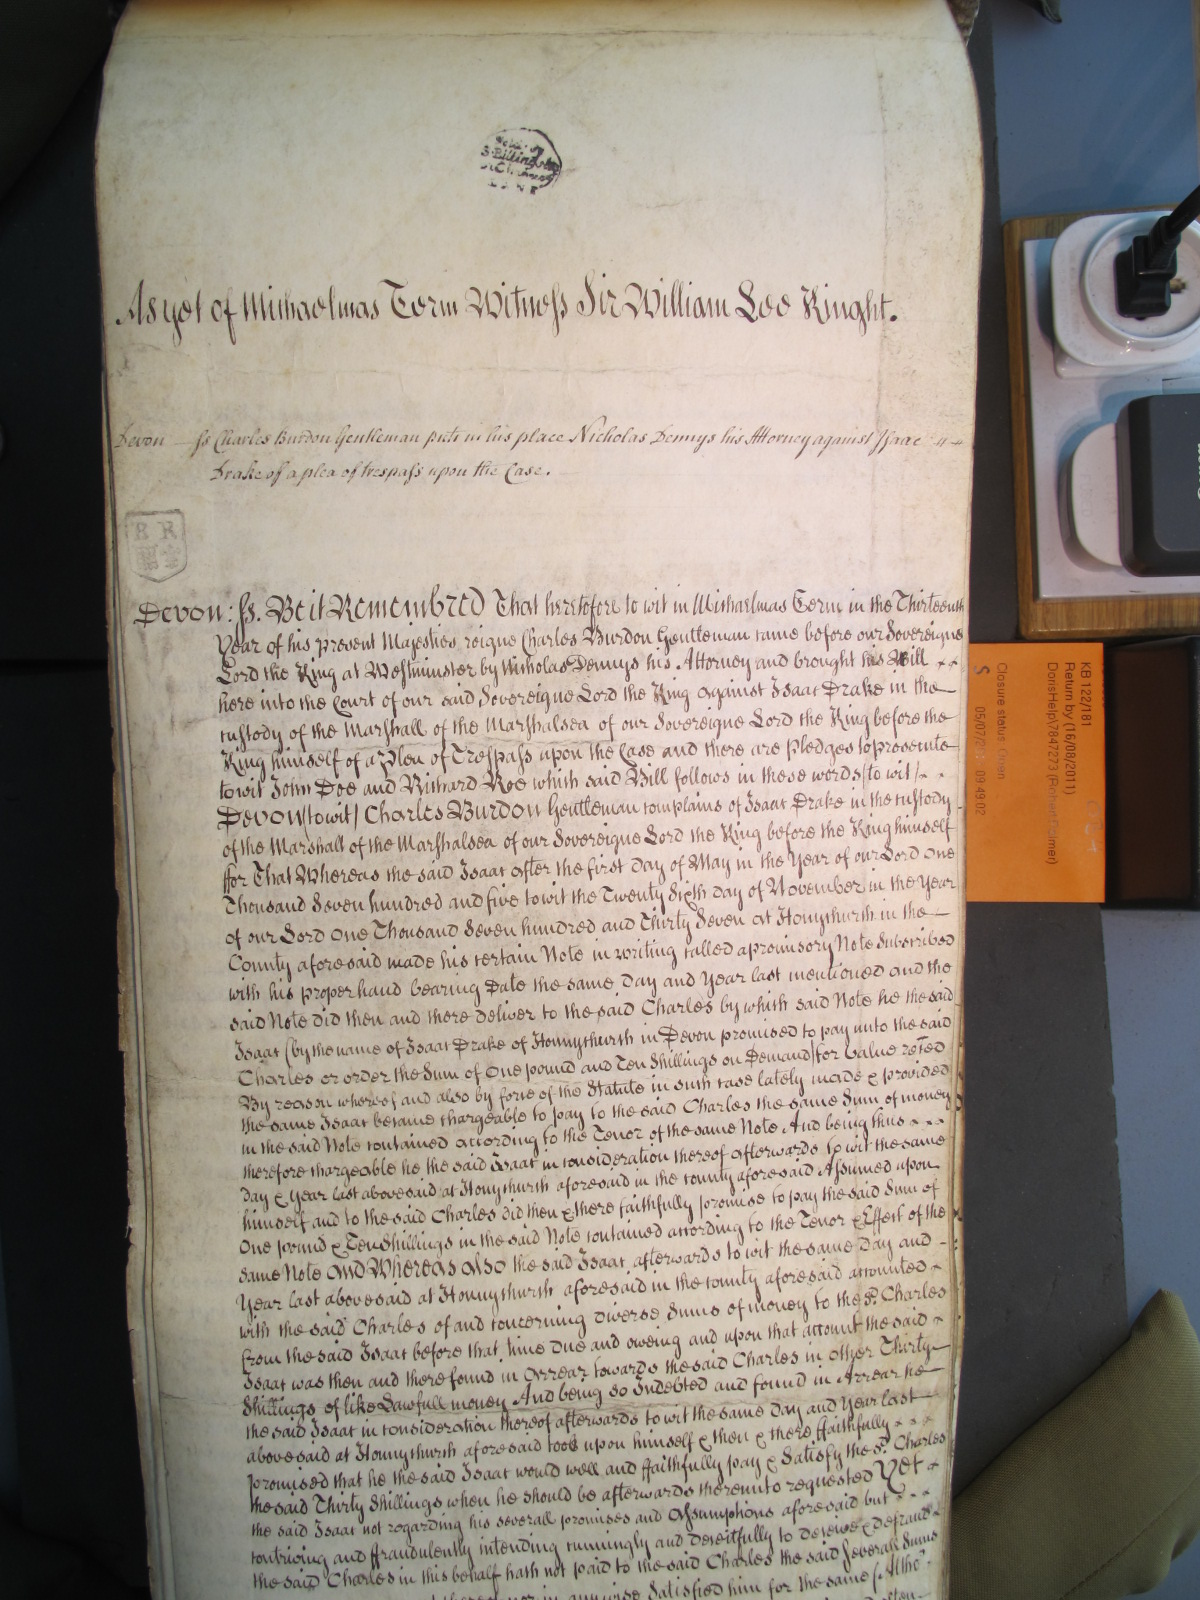 As yet of Michaelmas Term Witness Sir William Lee Knight.
Devon — ss Charles Burdon Gentleman puts in his place Nicholas Dennys his Attorney against Isaac
Drake of a plea of trespass upon the Case.
Devon: ss. Be it Remembred That heretofore to wit in Michaelmas Term in the Thirteenth
Year of his present Majesties reigne Charles Burdon Gentleman came before our Sovereigne
Lord the King at Westminster by Nicholas Dennys his Attorney and brought his Bill
here into the Court of our said Sovereigne Lord the King against Isaac Drake in the
custody of the Marshall of the Marshalsea of our Sovereigne Lord the King before the
King himself of a Plea of Trespass upon the Case and there are pledges to prosecute
to wit John Doe and Richard Roe which said Bill follows in these words (to wit)
Devon (to wit) Charles Burdon Gentleman complains of Isaac Drake in the custody
of the Marshall of the Marshalsea of our Sovereigne Lord the King before the King himself
ffor That Whereas the said Isaac after the first day of May in the Year of our Lord One
Thousand Seven hundred and five to wit the Twenty Sixth day of November in the Year
of our Lord One Thousand Seven hundred and Thirty Seven at Honychurch in the
County aforesaid made his certain Note in writing called a promisory Note Subscribed
with his proper hand bearing Date the same day and Year last mentioned and the
said Note did then and there deliver to the said Charles by which said Note he the said
Isaac (by the name of Isaac Drake of Honnychurch in Devon promised to pay unto the said
Charles or order the Sum of One pound and Ten Shillings on Demand) for Value reced
By reason whereof and also by force of the Statute in such case lately made & provided
the same Isaac became chargeable to pay to the said Charles the same Sum of money
in the said Note contained according to the Tenor of the same Note And being thus
therefore chargeable he the said Isaac in consideration thereof afterwards to wit the same
day & Year last abovesaid at Honychurch aforesaid in the county aforesaid Assumed upon
himself and to the said Charles did then & there faithfully promise to pay the said Sum of
One pound & Ten Shillings in the said Note contained according to the Tenor & Effect of the
same Note And Whereas also the said Isaac afterwards to wit the same Day and
Year last abovesaid at Honnychurch aforesaid in the county aforesaid accounted
with the said Charles of and concerning diverse Sums of money to the sd. Charles
from the said Isaac before that time due and oweing and upon that account the said
Isaac was then and there found in Arrear towards the said Charles in other Thirty
Shillings of like Lawfull money And being so Indebted and found in Arrear he
the said Isaac in consideration thereof afterwards to wit the same day and Year last
abovesaid at Honnychurch aforesaid took upon himself & then & there ffaithfully
promised that he the said Isaac would well and ffaithfully pay & Satisfy the sd. Charles
the said Thirty Shillings when he should be afterwards thereunto requested Yet
the said Isaac not regarding his severall promises and Assumptions aforesaid but
contriving and fraudulently intending cunningly and deceitfully to deceive & defraud
the said Charles in this behalf hath not paid to the said Charles the said severall Sums
in any wise Satisfied him for the same (Altho'
KB 122/181
Return by (16/08/2011)
DorisHelp\7847273 (Robert Palmer)
Closure status: Open
S
09:49:02